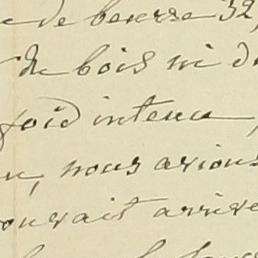 de beurre 32,
de bois ni d
foid intenu,
n, nous avions
ouvait arrive